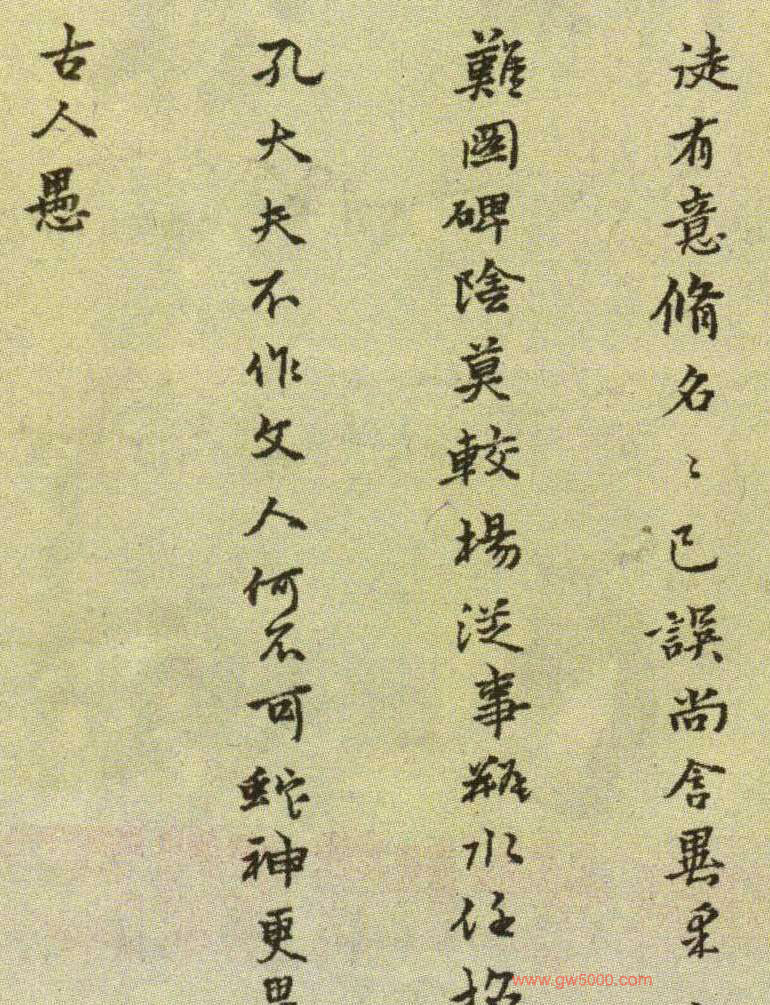 徒有意脩名〻已誤尚含異采
難圖碑陰莫較楊從事難水任
孔大夫不作文人何不可蛇神更
古人愚
www.gw5000.com